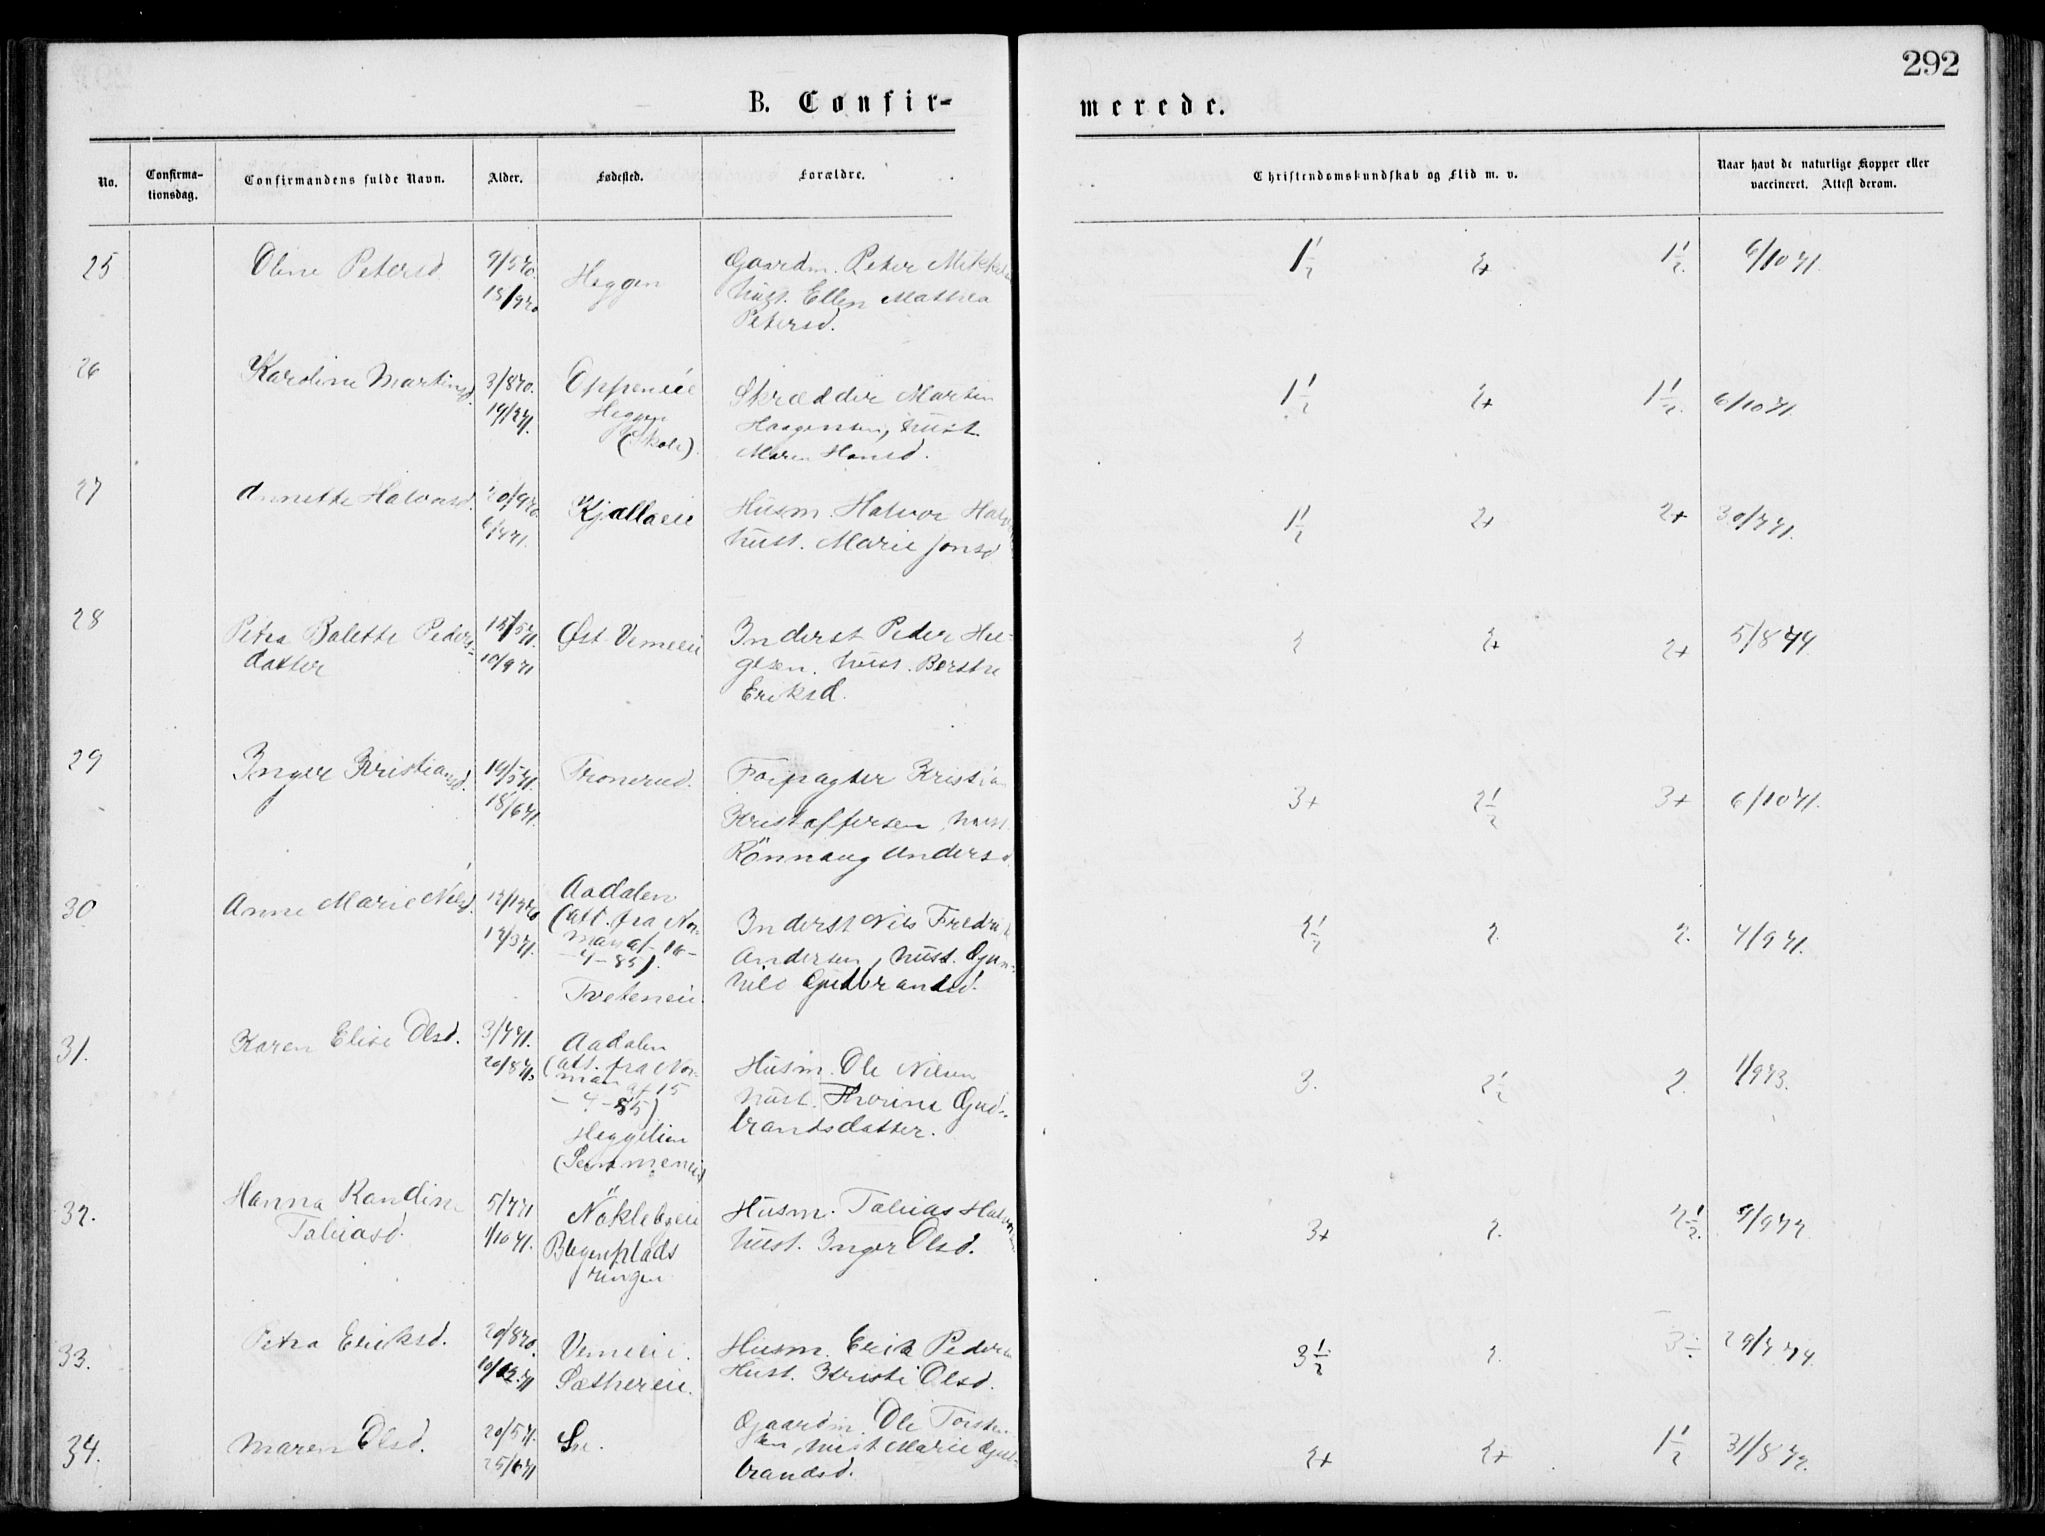 292
B. Confir-
merede.
No.
Confirma-
tionsdag.
Confirmandens fulde Navn.
Alder.
Fødested.
Forældre.
Christendomskundskab og Flid m. v.
Naar havt de naturlige Kopper eller
vaccineret. Attest derom.
25
Oline Petersd.
9/5 70.
18/9 70
Heggen
Gaardm. Peter Mikkels
hust. Ellen Mathea
Petersd.
1½
2+
1½.
6/10 71.
26
Karoline Martinsd.
3/8 70.
19/3 71.
Oppeneie
Heggen
(Skole).
Skrædder Martin
Haagensen, hust.
Maren Hansd.
1½
2+
1½.
6/10 71.
27
Annette Halvorsd.
20/9 70.
Kjøllaeie
Husm. Halvor
hust. Marie Jonsd
1½
2+
2+
30/7 71.
28
Petra Bolette Peders-
datter
15/5 71.
10/9 71
Øst Vemeeie
Inderst Peder Hel-
gesen. hust. Berthe
Eriksd.
2
2+
2+
5/8 74.
29
Inger Kristiansd.
14/5 71.
18/6 71.
Tronerud.
Forpagter Kristian
Kristoffersen, hust.
Rönnaug Andersd
3+
2½
3+
6/10 71.
30
Anne Marie Nilsd.
12/12 70
12/3 71.
Aadalen
(att. fra Nor-
man af 10-
-4-85).
Tveteneie.
Inderst Nils Fredrik
Andersen, hust. Gun-
hild Gudbrandsd.
2½
2.
2.
4/9 71.
31.
Karen Elise Olsd.
3/7 71.
20/8 71.
Aadalen
(att. fra Nor-
man af 15
-4-85).
Heggelien
(Semmeneie)
Husm. Ole Nilsen
hust. Thorine Gud-
brandsdatter.
3.
2½
2.
1/9 73.
32.
Hanna Randine
Tobiasd.
5/7 71
1/10 71.
Nöklebyeie
plads
Husm. Tobias Halvorsen
hust. Inger Olsd.
3+
2.
2½.
9/9 72
33.
Petra Eriksd.
20/8 70.
Vemeeie.
Sæthereie.
Husm. Erik Pedersen
Hust. Kristi Olsd.
3½
2.
3÷
29/7 74.
34.
Maren Olsd.
20/5 71.
25/6 71
Gaardm. Ole Torsten
sen, hust Marie Gul-
brandsd.
2+
2+
1½
31/8 72.